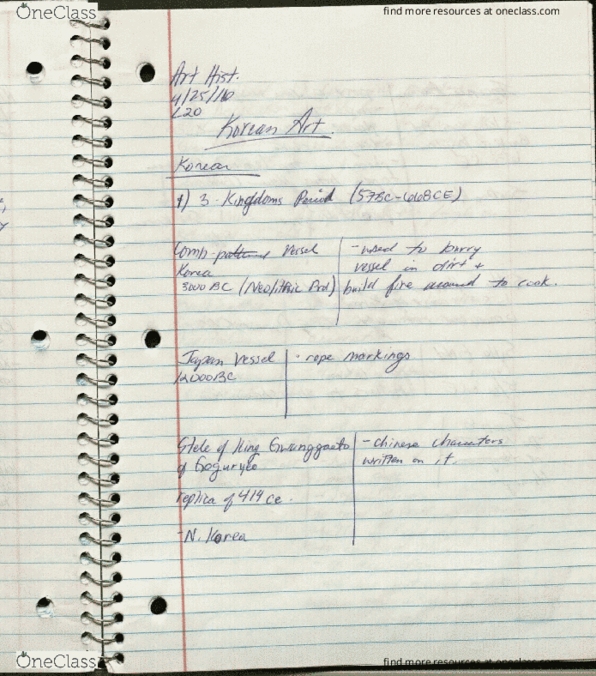 OneClass
find more resources at oneclass.com
Art Hist.
4/25/16
L20
Korean Art
Korean
1) 3 Kingdoms Period (57BC-668CE)
Comb-patterned Vessel
Korea
3000 BC (Neolithic Prd)
- used to burry
vessel in dirt +
build fire around to cook.
Japan Vessel
12000BC
- rope markings
Stele of King Gwanggaeto
of Goguryeo
replica of 414 ce.
-N. Korea
- chinese characters
written on it.
OneClass
find more resources at oneclass.com